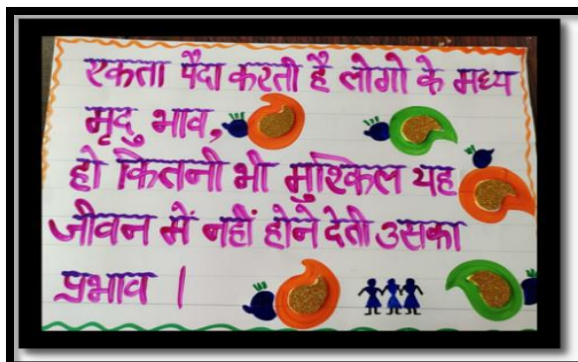 एकता पैदा करती है लोगो के मध्य
मृदु भाव,
हो कितनी भी मुश्किल यह
जीवन में नहीं होने देती उसका
प्रभाव ।